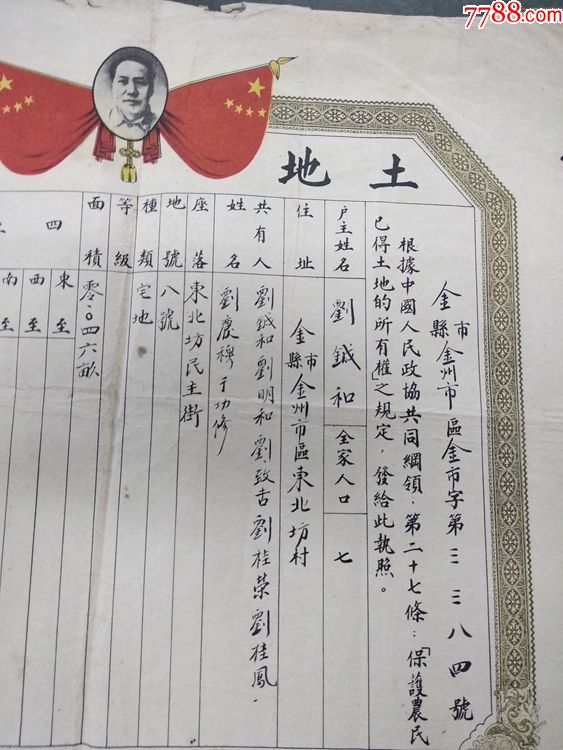 7788.com
土地
金縣市金州市區金市字第三三八四號
根據中國人民政協共同綱領,第二十七條:「保護農民
已得土地的所有權」之規定,發給此執照。
户主姓名 劉鉞和 全家人口 七
住址 金縣市金州市區東北坊村
共有人 劉鉞和 劉明和 劉致吉 劉桂榮 劉桂鳳
姓名 劉慶穆 于功修
座落 東北坊民主街
地號 八號
種類 宅地
等級
面積 零.〇四六畝
四
東至
西至
南至